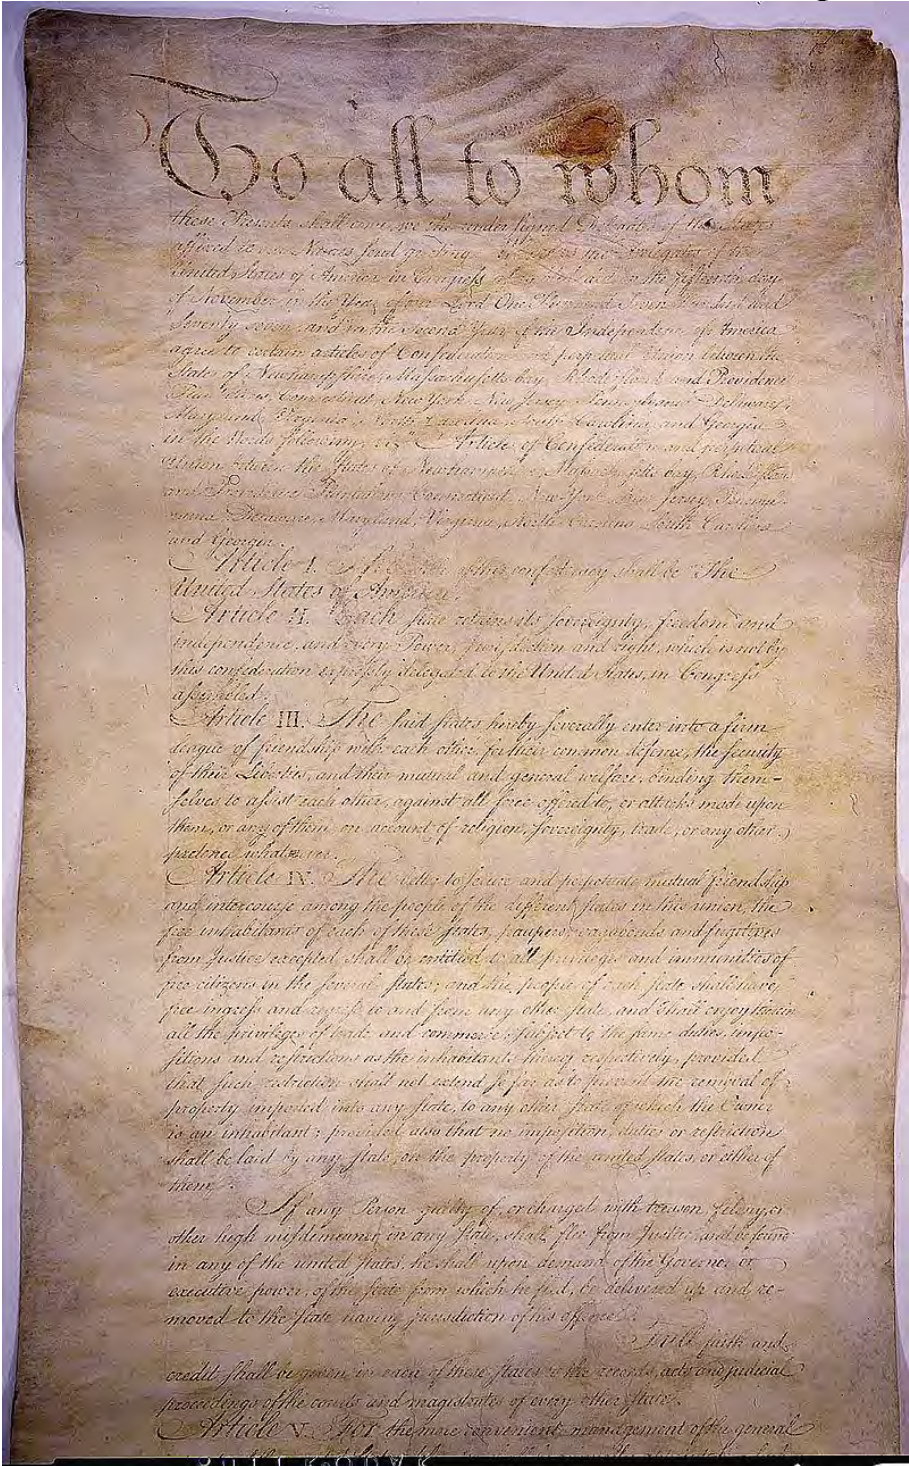 To all to whom
these Presents shall come, we the under signed Delegates of the States
affixed to our Names send greeting. Whereas the Delegates of the
United States of America in Congress assembled did on the fifteenth day
of November in the Year of our Lord One Thousand Seven Hundred and
Seventy seven, and in the Second Year of the Independence of America
agree to certain articles of Confederation and perpetual Union between the
States of Newhampshire, Massachusetts bay, Rhodeisland and Providence
Plantations, Connecticut, New York, New Jersey, Pennsylvania, Delaware,
Maryland, Virginia, North Carolina, South Carolina, and Georgia
in the Words following, viz. Articles of Confederation and perpetual
Union between the States of Newhampshire, Massachusetts bay, Rhodeisland
and Providence Plantations, Connecticut, New York, New Jersey, Pennsyl-
vania, Delaware, Maryland, Virginia, North Carolina, South Carolina
and Georgia.
Article I. The of this confederacy shall be "The
United States of America."
Article II. Each state retains its sovereignty, freedom and
independence, and every Power, Jurisdiction and right, which is not by
this confederation expressly delegated to the United States, in Congress
assembled.
Article III. The said states hereby severally enter into a firm
league of friendship with each other, for their common defence, the security
of their Liberties, and their mutual and general welfare, binding them-
selves to assist each other, against all force offered to, or attacks made upon
them, or any of them, on account of religion, sovereignty, trade, or any other
pretence whatever.
Article IV. The better to secure and perpetuate mutual friendship
and intercourse among the people of the different states in this union, the
free inhabitants of each of these states, paupers, vagabonds and fugitives
from Justice excepted, shall be entitled to all privileges and immunities of
free citizens in the several states; and the people of each state shall have
free ingress and regress to and from any other state, and shall enjoy therein
all the privileges of trade and commerce, subject to the same duties, impo-
sitions and restrictions as the inhabitants thereof respectively, provided
that such restriction shall not extend so far as to prevent the removal of
property imported into any state, to any other state of which the Owner
is an inhabitant; provided also that no imposition, duties or restriction
shall be laid by any state, on the property of the united states, or either of
them.
If any Person guilty of, or charged with treason, felony, or
other high misdemeanor in any state, shall flee from Justice, and be found
in any of the united states, he shall upon demand of the Governor or
executive power, of the state from which he fled, be delivered up and re-
moved to the state having jurisdiction of his offence.
Full faith and
credit shall be given in each of these states to the records, acts and judicial
proceedings of the courts and magistrates of every other state.
Article V. For the more convenient management of the general